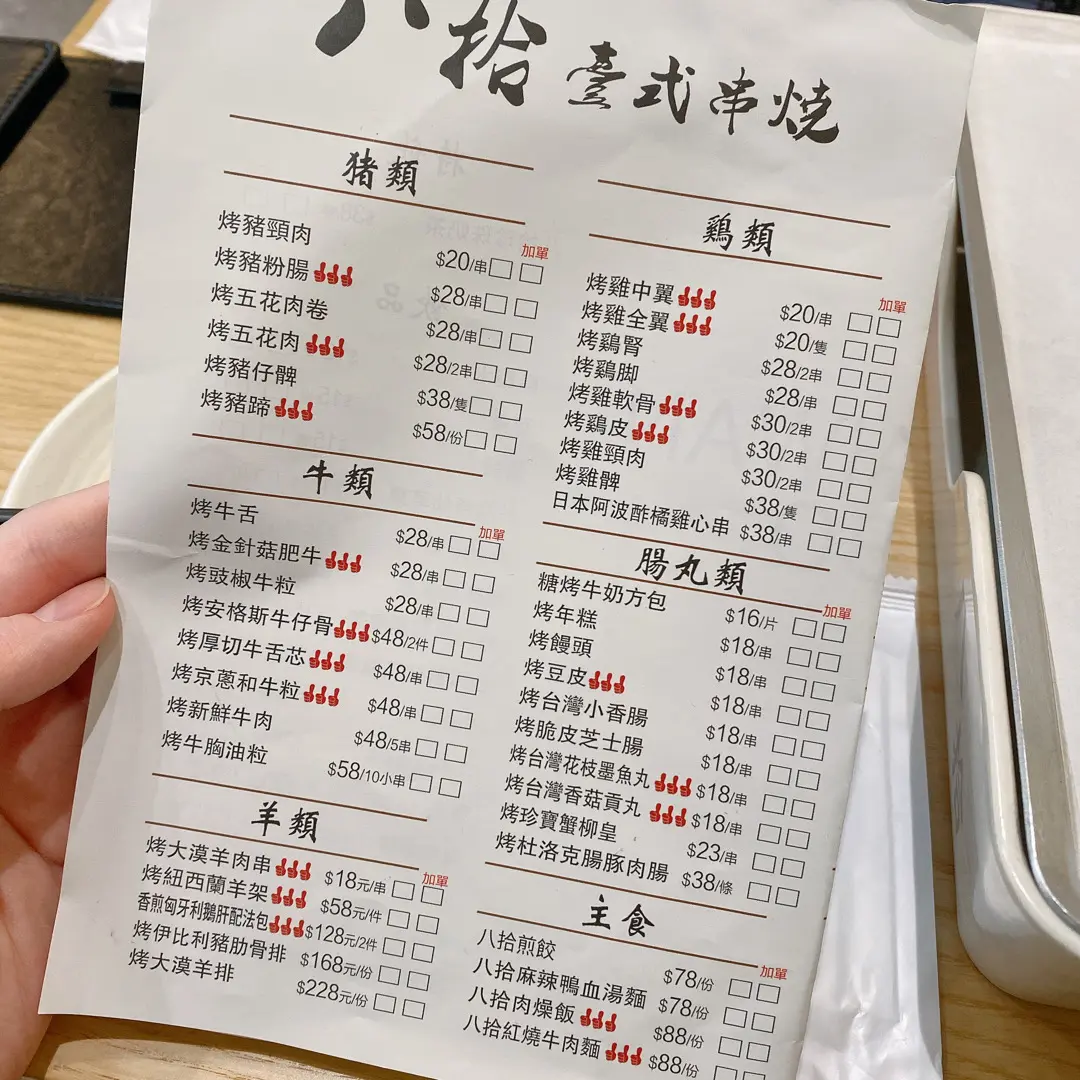 八拾 臺式串燒
猪類
加單
烤豬頸肉 $20/串
烤豬粉腸 $28/串
烤五花肉卷 $28/串
烤五花肉 $28/2串
烤豬仔髀 $38/隻
烤豬蹄 $58/份
牛類
加單
烤牛舌 $28/串
烤金針菇肥牛 $28/串
烤豉椒牛粒 $28/串
烤安格斯牛仔骨 $48/2件
烤厚切牛舌芯 $48/串
烤京蔥和牛粒 $48/串
烤新鮮牛肉 $48/5串
烤牛胸油粒 $58/10小串
羊類
加單
烤大漠羊肉串 $18元/串
烤紐西蘭羊架 $58元/件
香煎匈牙利鵝肝配法包 $128元/2件
烤伊比利豬肋骨排 $168元/份
烤大漠羊排 $228元/份
鷄類
加單
烤雞中翼 $20/串
烤雞全翼 $20/隻
烤鷄腎 $28/2串
烤鷄脚 $28/串
烤雞軟骨 $30/2串
烤鷄皮 $30/2串
烤雞頸肉 $30/2串
烤雞髀 $38/隻
日本阿波酢橘雞心串 $38/串
腸丸類
加單
糖烤牛奶方包 $16/片
烤年糕 $18/串
烤饅頭 $18/串
烤豆皮 $18/串
烤台灣小香腸 $18/串
烤脆皮芝士腸 $18/串
烤台灣花枝墨魚丸 $18/串
烤台灣香菇貢丸 $18/串
烤珍寶蟹柳皇 $23/串
烤杜洛克腸豚肉腸 $38/條
主食
加單
八拾煎餃 $78/份
八拾麻辣鴨血湯麵 $78/份
八拾肉燥飯 $88/份
八拾紅燒牛肉麵 $88/份